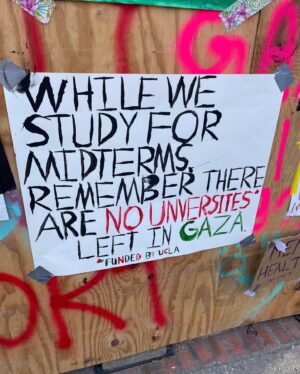 WHILE WE
STUDY FOR
MIDTERMS
REMEMBER THERE
ARE NO UNVERSITES*
LEFT IN GAZA.
*FUNDED BY UCLA
GA
HEALTH